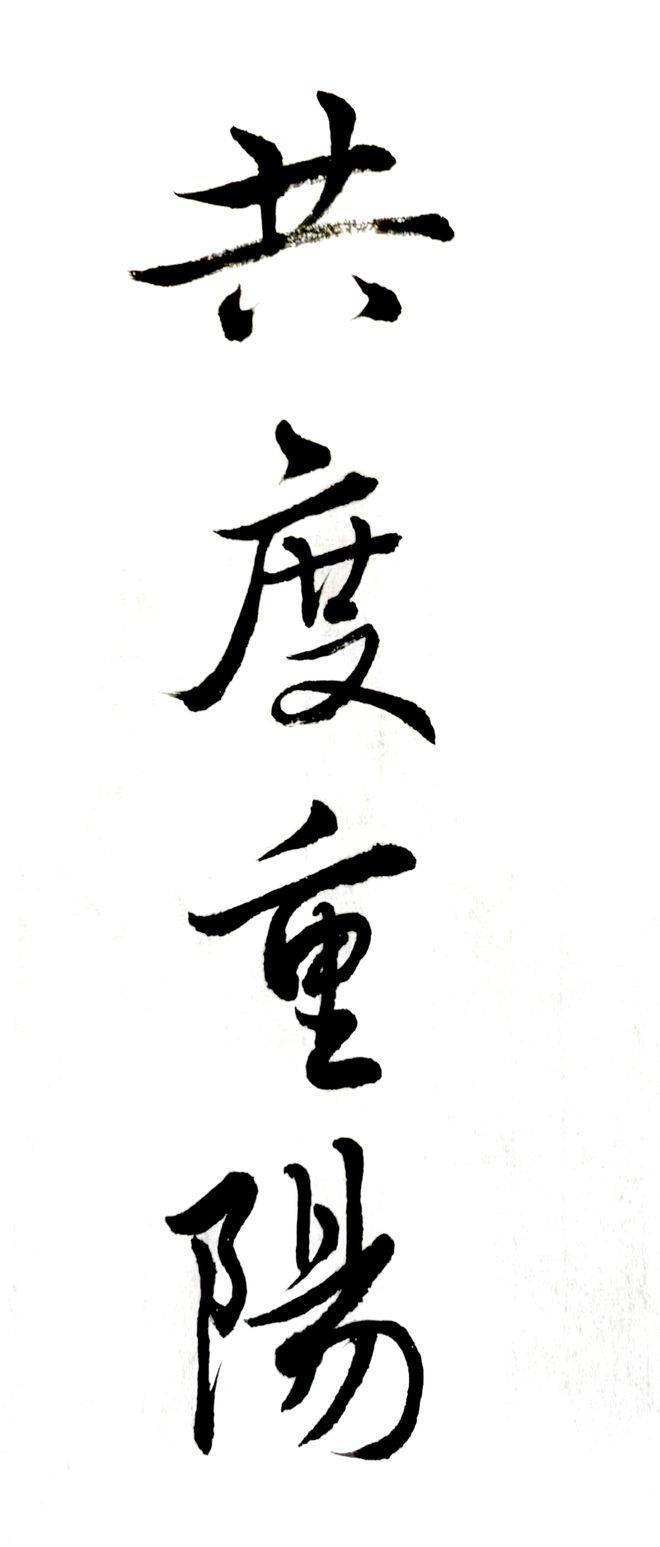 共度重陽